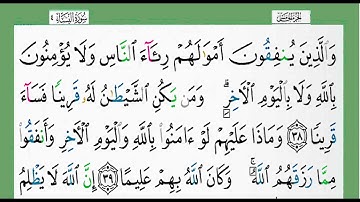 الجزء الخامس سورة النساء ٤
وَالَّذِينَ يُنفِقُونَ أَمْوَالَهُمْ رِئَاءَ النَّاسِ وَلَا يُؤْمِنُونَ
بِاللَّهِ وَلَا بِالْيَوْمِ الْآخِرِ ۗ وَمَن يَكُنِ الشَّيْطَانُ لَهُ قَرِينًا فَسَاءَ
قَرِينًا ٣٨ وَمَاذَا عَلَيْهِمْ لَوْ ءَامَنُوا بِاللَّهِ وَالْيَوْمِ الْآخِرِ وَأَنفَقُوا
مِمَّا رَزَقَهُمُ اللَّهُ ۚ وَكَانَ اللَّهُ بِهِمْ عَلِيمًا ٣٩ إِنَّ اللَّهَ لَا يَظْلِمُ